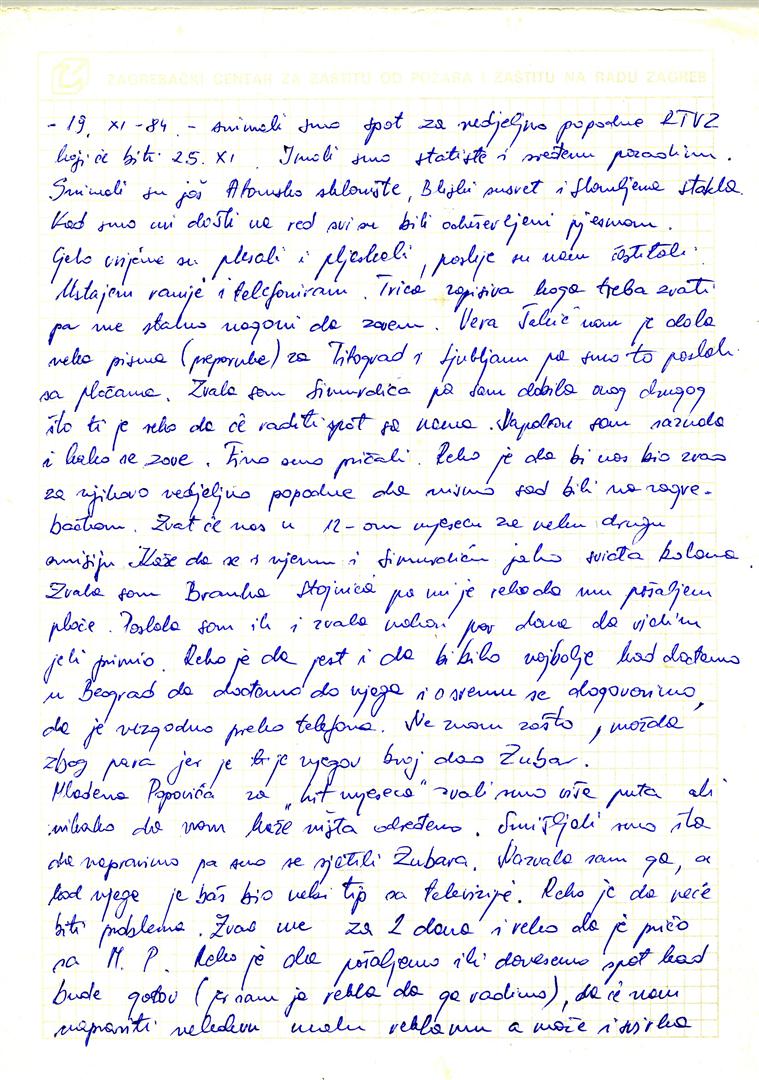 ZAGREBAČKI CENTAR ZA ZAŠTITU OD POŽARA I ZAŠTITU NA RADU ZAGREB
- 19. XI -84. - snimali smo spot za nedjeljno popodne RTVZ
koji će biti 25. XI. Imali smo statiste i sređenu pozadinu.
Snimali su još Atomsko sklonište, Bliski susret i Slomljena stakla.
Kad smo mi došli na red svi su bili oduševljeni pjesmom.
Cjelo vrijeme su plesali i pljeskali, poslije su nam čestitali.
Ustajem ranije i telefoniram. Trica zapisiva koga treba zvati
pa me stalno nagoni da zovem. Vera nam je dala
neka pisma (preporuke) za Titograd i Ljubljanu pa smo to poslali
sa pločama. Zvala sam Simurdića pa sam dobila onog drugog
što ti je reko da će raditi spot sa nama. Napokon sam saznala
i kako se zove. Fino smo pričali. Reko je da bi nas bio zvao
za njihovo nedjeljno popodne da nismo sad bili na zagre-
bačkom. Zvat će nas u 12-om mjesecu za neku drugu
emisiju. Kaže da se i njemu i Simurdiću jako sviđa kolona.
Zvala sam Branka Stojnića pa mi je reko da mu pošaljem
ploče. Poslala sam ih i zvala nakon par dana da vidim
jeli primio. Reko je da jest i da bi bilo najbolje kad dođemo
u Beograd da dođemo do njega i o svemu se dogovorimo,
da je nezgodno preko telefona. Ne znam zašto, možda
zbog para jer je ti je njegov broj dao Zubar.
Mladena Popovića za „hit mjeseca" zvali smo više puta ali
nikako da nam kaže ništa određeno. Smišljali smo šta
da napravimo pa smo se sjetili Zubara. Nazvala sam ga, a
kod njega je baš bio neki tip sa televizije. Reko je da neće
biti problema. Zvao me za 2 dana i reko da je pričo
sa M. P. Reko je da pošaljemo ili dovesemo spot kad
bude gotov (jer sam ja rekla da ga radimo), da će nam
napraviti nekakvu malu reklamu a može i svirka